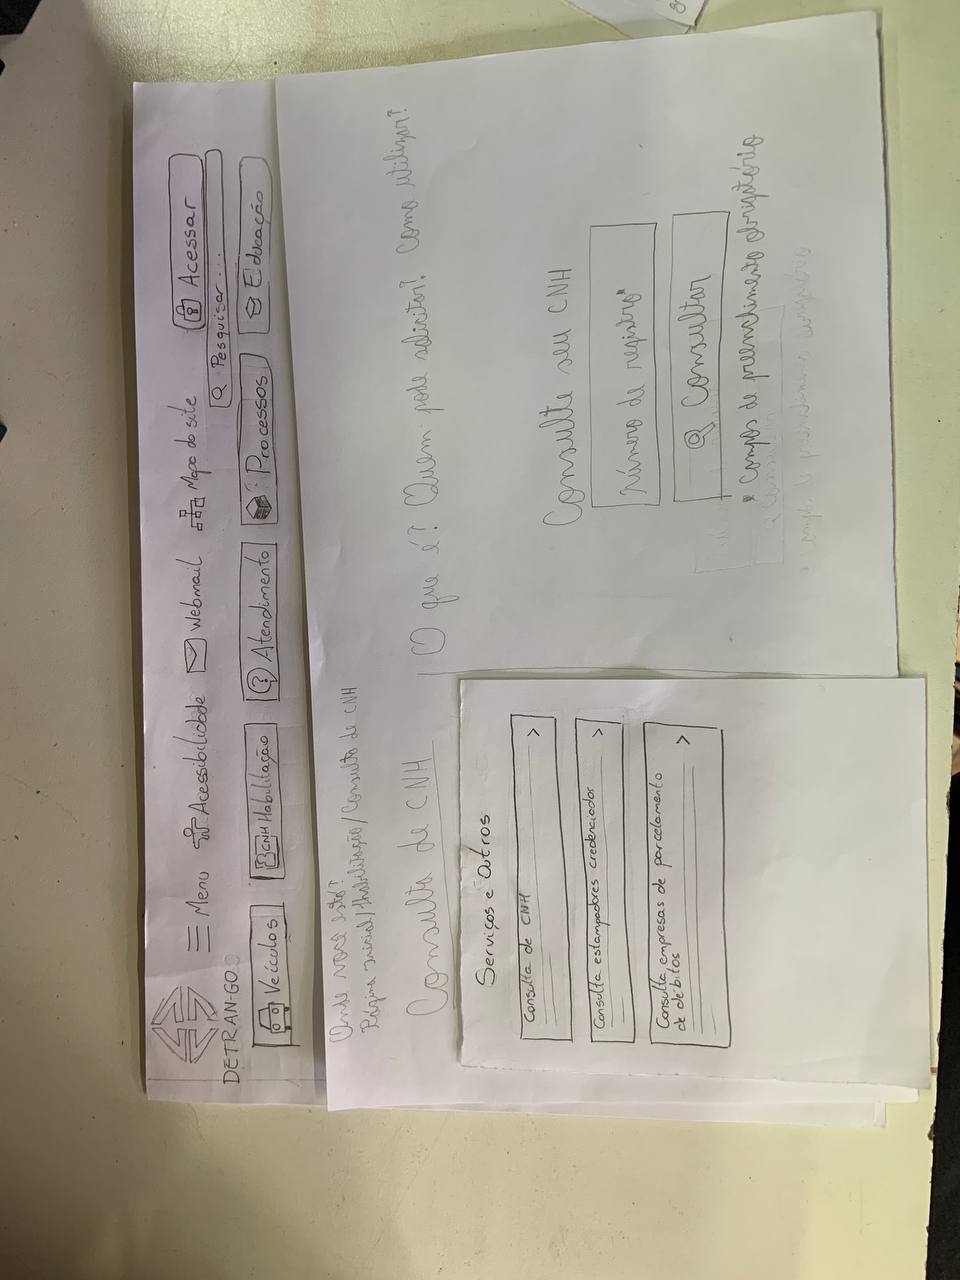 DETRAN-GO
Menu
Acessibilidade
Webmail
Mapa do site
Acessar
Pesquisar...
Veículos
CNH Habilitação
Atendimento
Processos
Educação
Onde você está?
Página inicial/Habilitação/Consulta de CNH
Consulta de CNH
Serviços e Outros
Consulta de CNH
>
Consulta estampadores credenciados
>
Consulta empresas de parcelamento
de débitos
>
O que é? Quem pode solicitar? Como utilizar?
Consulte seu CNH
Número de registro*
Consultar
* campos de preenchimento obrigatório